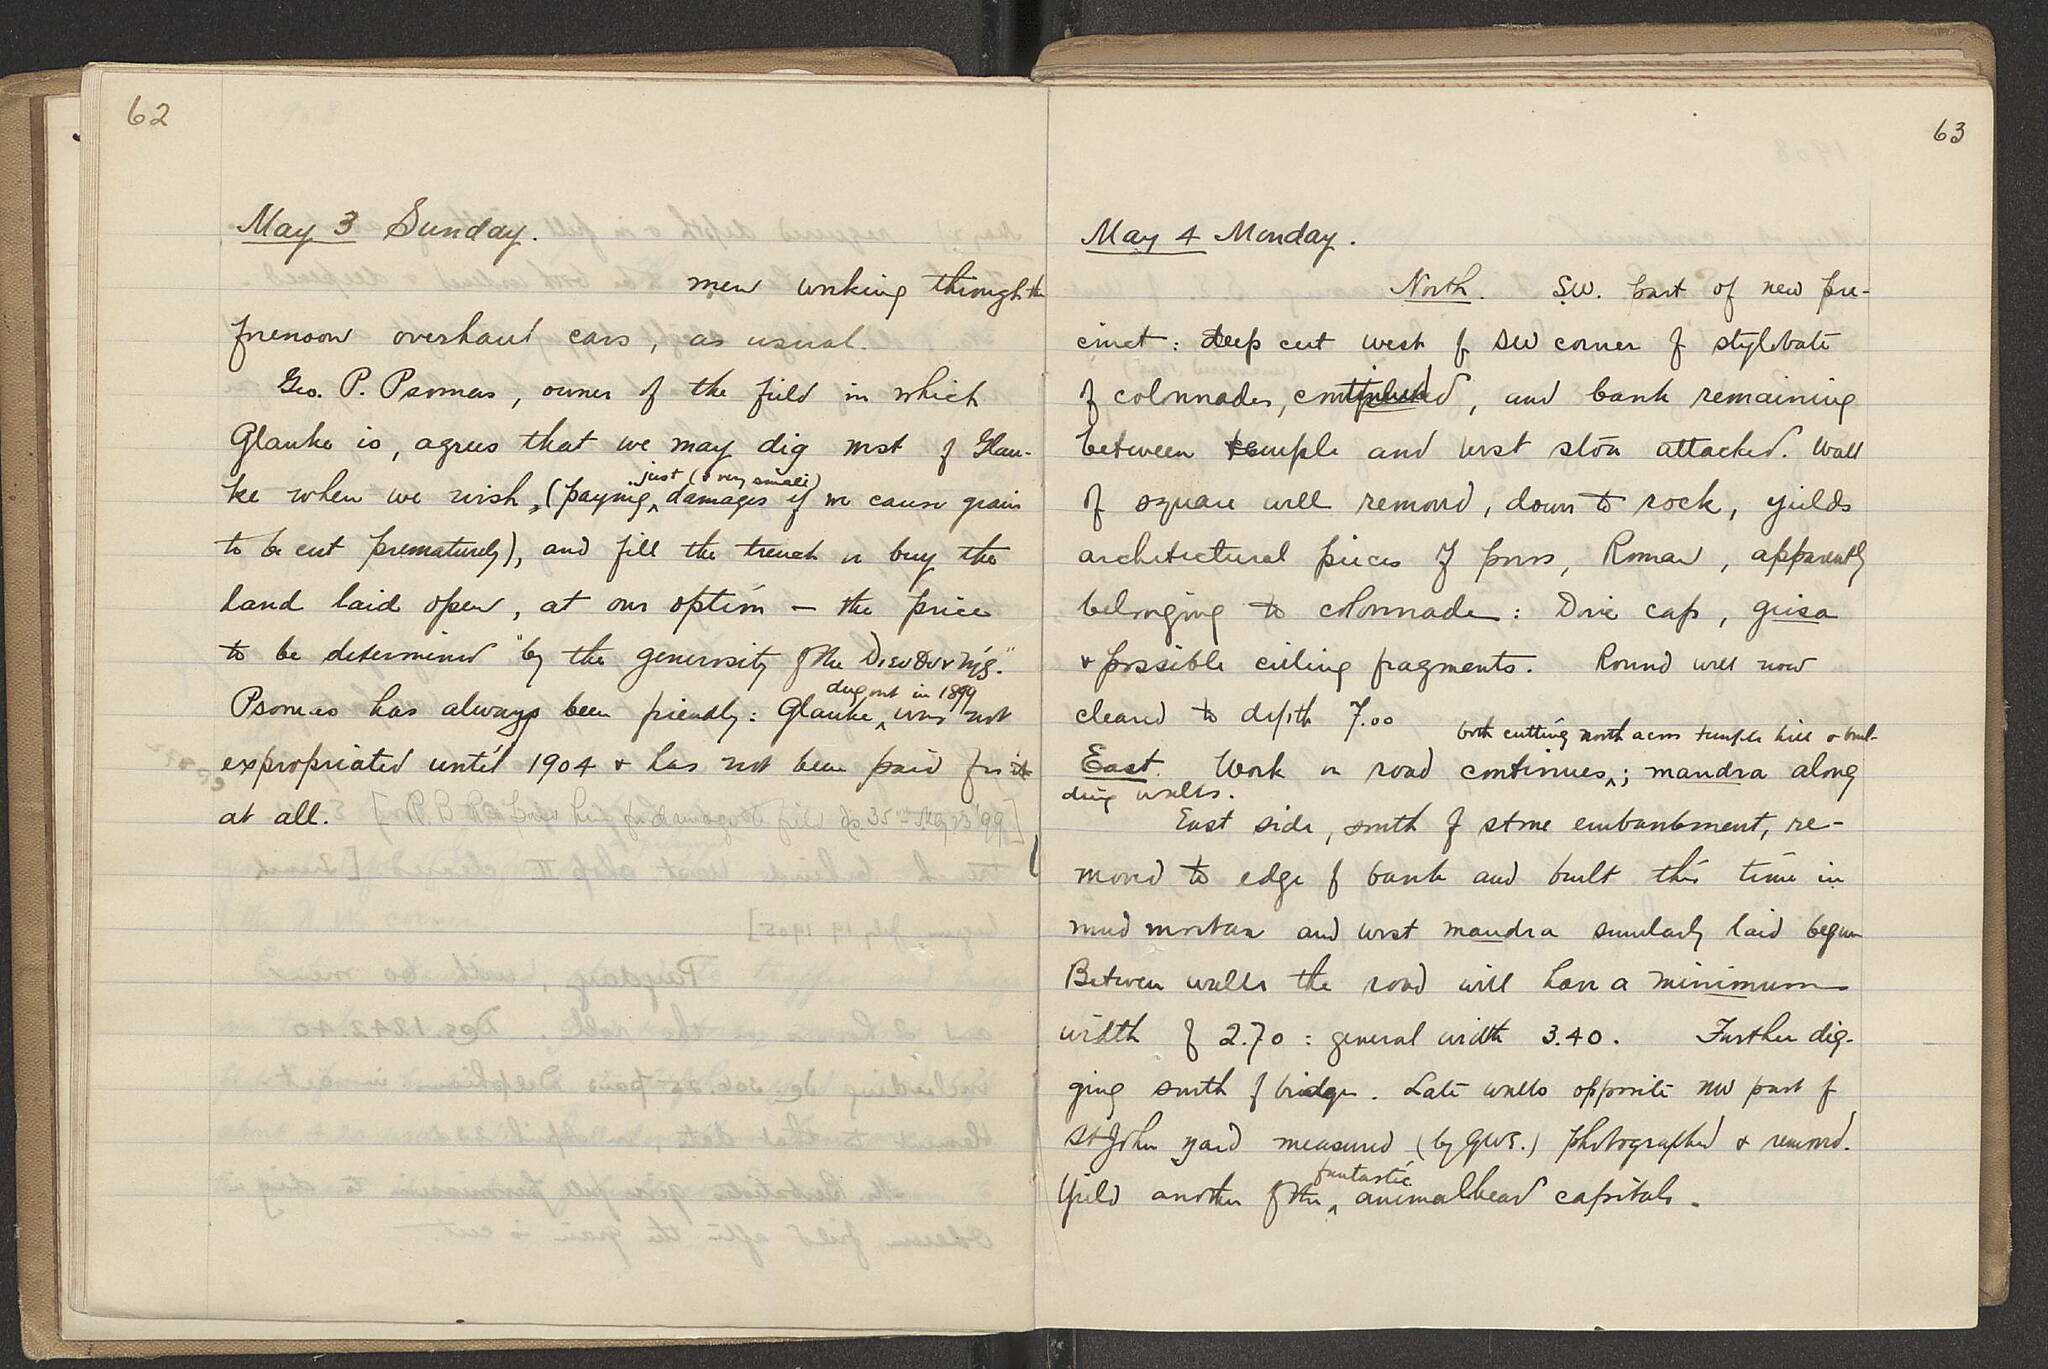 62
May 3 Sunday.
men working through the
forenoon overhaul cars, as usual.
Geo. P. Psomas, owner of the field in which
Glauke is, agrees that we may dig west of Glau-
ke when we wish, (paying just (& very small) damages if we cause grain
to be cut prematurely), and fill the trench or buy the
land laid open, at our option — the price
to be determined "by the generosity of the Διευθυντής."
Psomas has always been friendly: Glauke dug out in 1899 was not
expropriated until 1904 & has not been paid for it
at all. [ R B R damage to field 35 May 23 '99]
63
May 4 Monday.
North. SW. part of new pre-
cinct: deep cut west of SW corner of stylobate
of colonnades, continued, and bank remaining
between temple and west stoa attacked. Wall
of square well removed, down to rock, yields
architectural pieces of poros, Roman, apparently
belonging to colonnade: Doric cap, geisa
& possible ceiling fragments. Round well now
cleared to depth 7.00
East. Work on road continues, both cutting north across temple hill & buil-
ding walls.; mandra along
East side, south of stone embankment, re-
moved to edge of bank and built this time in
mud mortar and west mandra similarly laid begun
Between walls the road will have a minimum
width of 2.70: general width 3.40. Further dig-
ging south of bridge. Late walls opposite NW part of
St John yard measured (by GWE.) photographed & removed.
Yield another of the fantastic animalhead capitals.